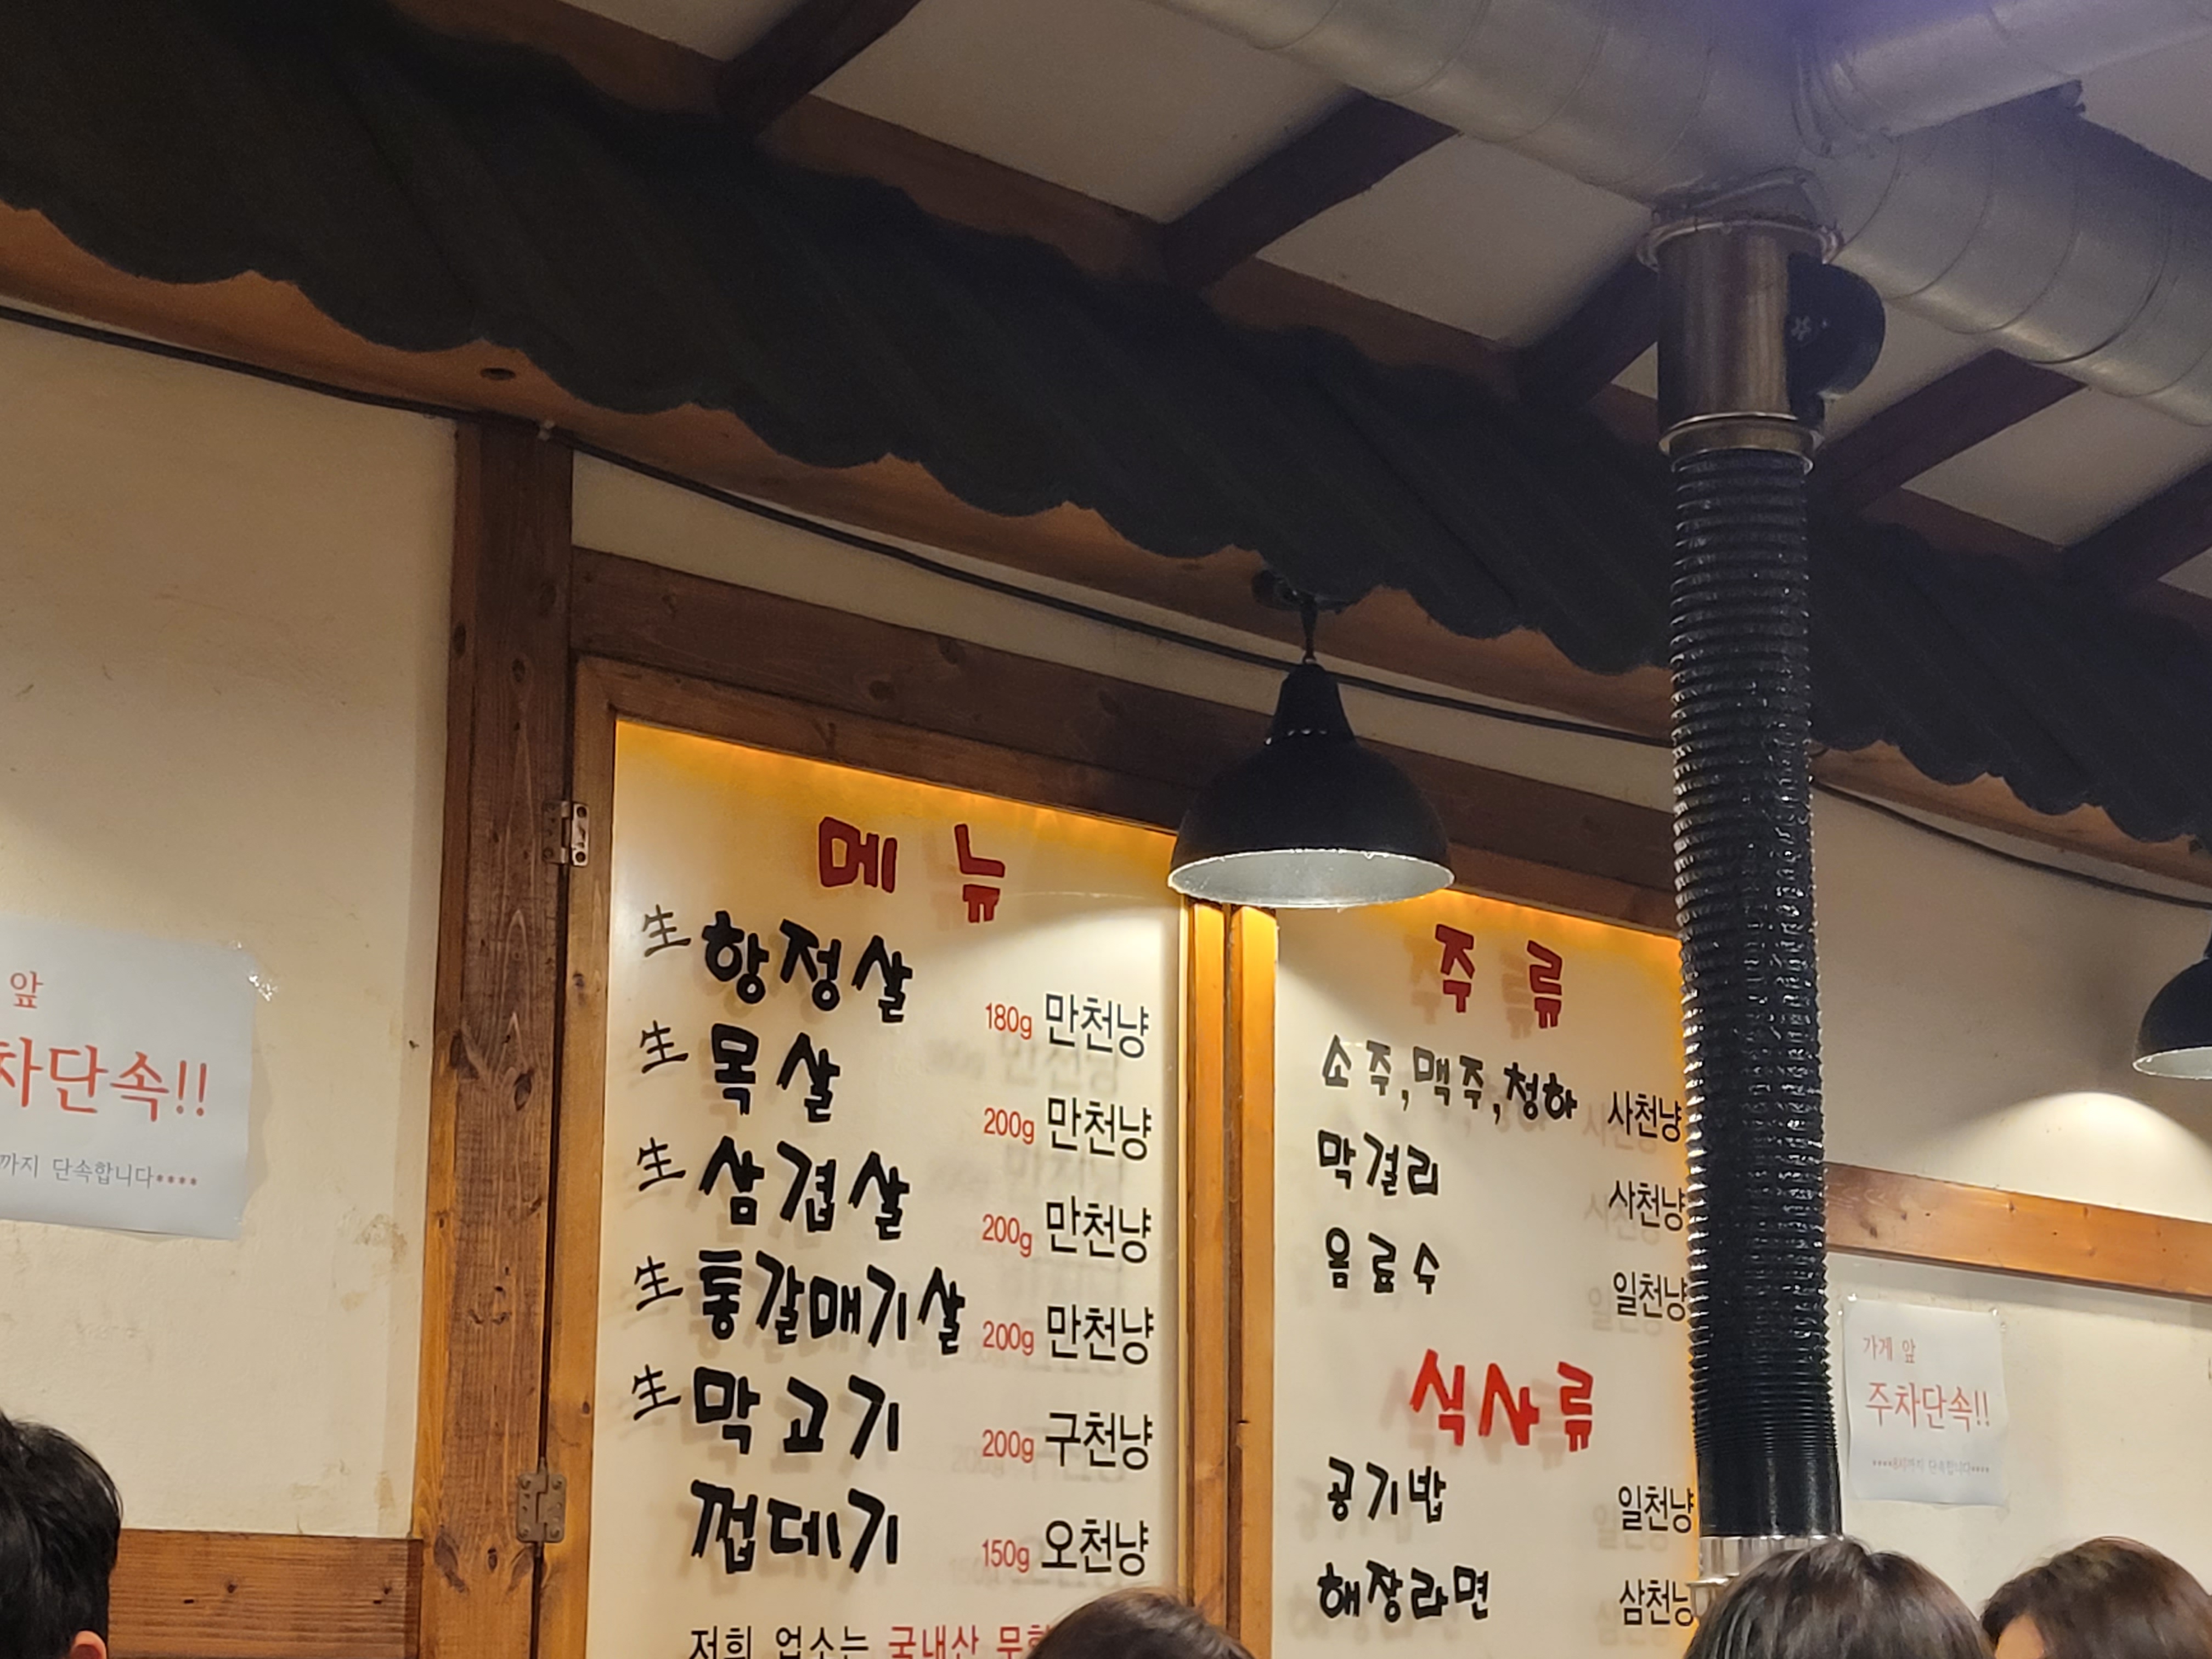 앞
차단속!!
까지 단속합니다****
메뉴
生 항정살 180g 만천냥
生 목살 200g 만천냥
生 삼겹살 200g 만천냥
生 통갈매기살 200g 만천냥
生 막고기 200g 구천냥
껍데기 150g 오천냥
저희 업소는 국내산
주류
소주,맥주,청하 사천냥
막걸리 사천냥
음료수 일천냥
식사류
공기밥 일천냥
해장라면 삼천냥
가게 앞
주차단속!!
****8시까지 단속합니다****